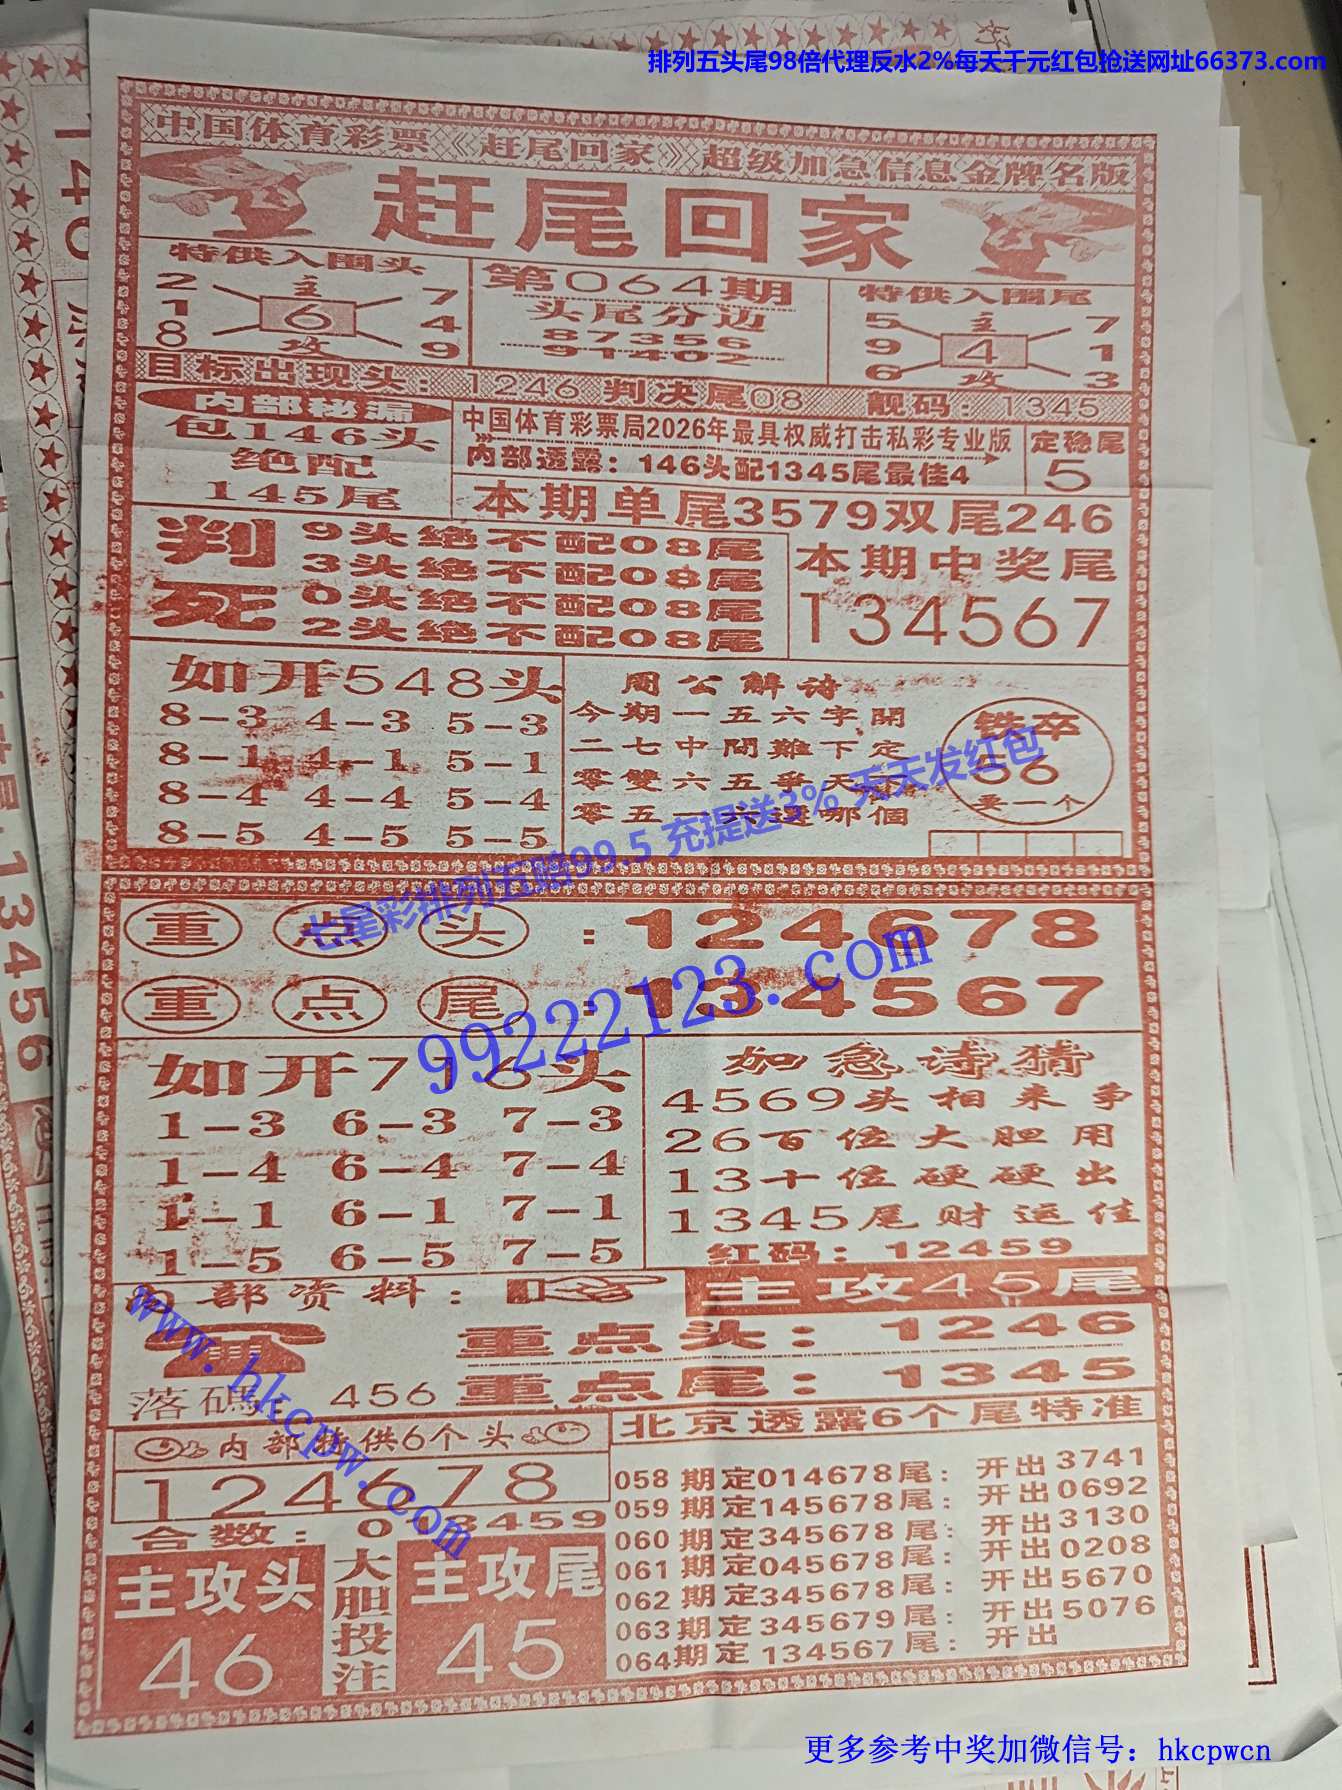 排列五头尾98倍代理反水2%每天千元红包抢送网址66373.com
中国体育彩票《赶尾回家》超级加急信息金牌名版
赶尾回家
特供入围头
2 主 7
1 6 4
8 攻 9
第064期
头尾分边
87356
91402
特供入围尾
5 主 7
9 4 1
6 攻 3
目标出现头：1246 判决尾08 靓码：1345
内部秘漏
包146头
绝配
145尾
中国体育彩票局2026年最具权威打击私彩专业版
内部透露：146头配1345尾最佳4
定稳尾
5
本期单尾3579双尾246
判死
9头绝不配08尾
3头绝不配08尾
0头绝不配08尾
2头绝不配08尾
本期中奖尾
134567
如开548头
8-3 4-3 5-3
8-1 4-1 5-1
8-4 4-4 5-4
8-5 4-5 5-5
周公解诗
今期一五六字開
二七中間難下定
零雙六五爭天
零五一六選哪個
铁卒
56
卖一个
七星彩排列五赔99.5 充提送3% 天天发红包
重点头：124678
重点尾：134567
99222123.com
如开716头
1-3 6-3 7-3
1-4 6-4 7-4
1-1 6-1 7-1
1-5 6-5 7-5
加急诗猜
4569头相来争
26百位大胆用
13十位硬硬出
1345尾财运佳
红码：12459
内部资料：
主攻45尾
www.hkcpw.com
落碼：456
重点头：1246
重点尾：1345
内部特供6个头
124678
合数：013459
主攻头
46
大胆投注
主攻尾
45
北京透露6个尾特准
058期定014678尾：开出3741
059期定145678尾：开出0692
060期定345678尾：开出3130
061期定045678尾：开出0208
062期定345678尾：开出5670
063期定345679尾：开出5076
064期定134567尾：开出
更多参考中奖加微信号：hkcpwcn